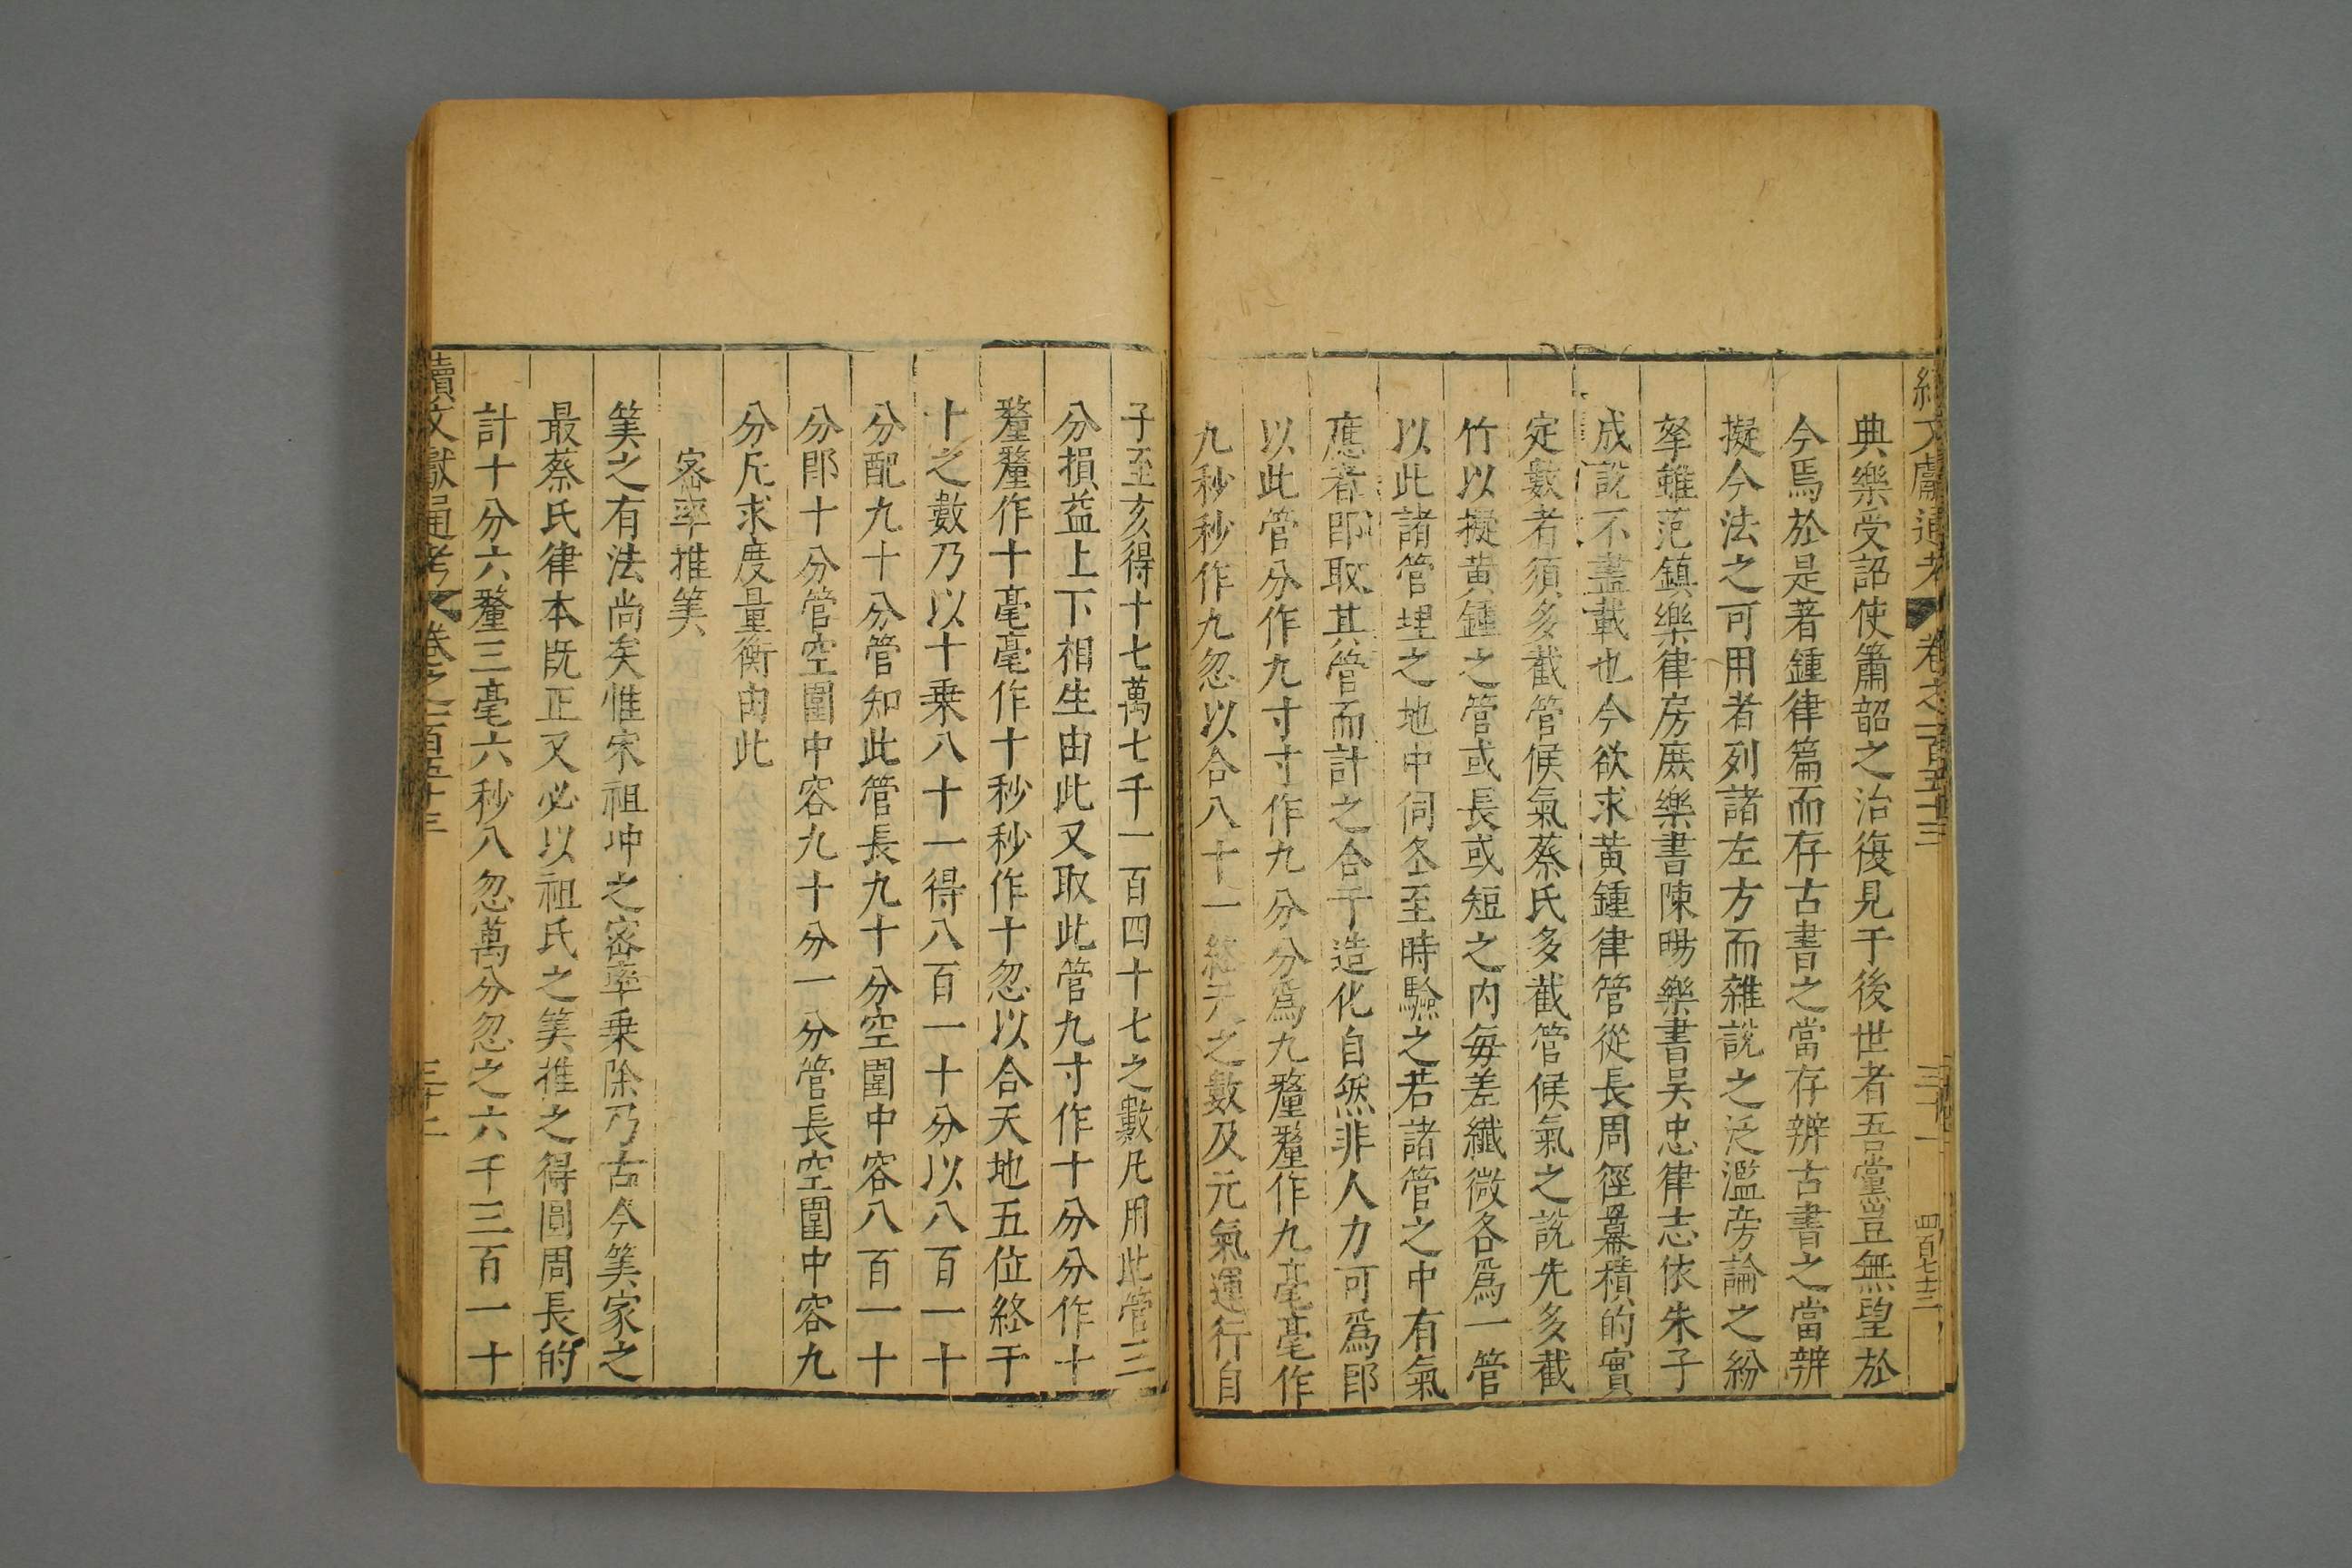 續文獻通考 卷之一百五十三
典樂受詔使簫韶之治復見于後世者吾黨豈無望於
今焉於是著鍾律篇而存古書之當存辨古書之當辨
擬今法之可用者列諸左方而雜說之泛濫旁論之紛
拏雖范鎮樂律房庶樂書陳暘樂書吳忠律志依朱子
成說不盡載也今欲求黃鍾律管從長周徑冪積的實
定數者須多截管候氣蔡氏多截管候氣之說先多截
竹以擬黃鍾之管或長或短之內每差纖微各爲一管
以此諸管埋之地中伺冬至時驗之若諸管之中有氣
應者即取其管而計之合于造化自然非人力可爲即
以此管分作九寸寸作九分分爲九釐釐作九毫毫作
九秒秒作九忽以合八十一終天之數及元氣運行自
子至亥得十七萬七千一百四十七之數凡用此管三
分損益上下相生由此又取此管九寸作十分分作十
釐釐作十毫毫作十秒秒作十忽以合天地五位終于
十之數乃以十乘八十一得八百一十分以八百一十
分配九十分管知此管長九十分空圍中容八百一十
分即十分管空圍中容九十分一分管長空圍中容九
分凡求度量衡由此
密率推筭
筭之有法尚矣惟宋祖冲之密率乘除乃古今筭家之
最蔡氏律本既正又必以祖氏之筭推之得圓周長的
計十分六釐三毫六秒八忽萬分忽之六千三百一十
續文獻通考 卷之一百五十三